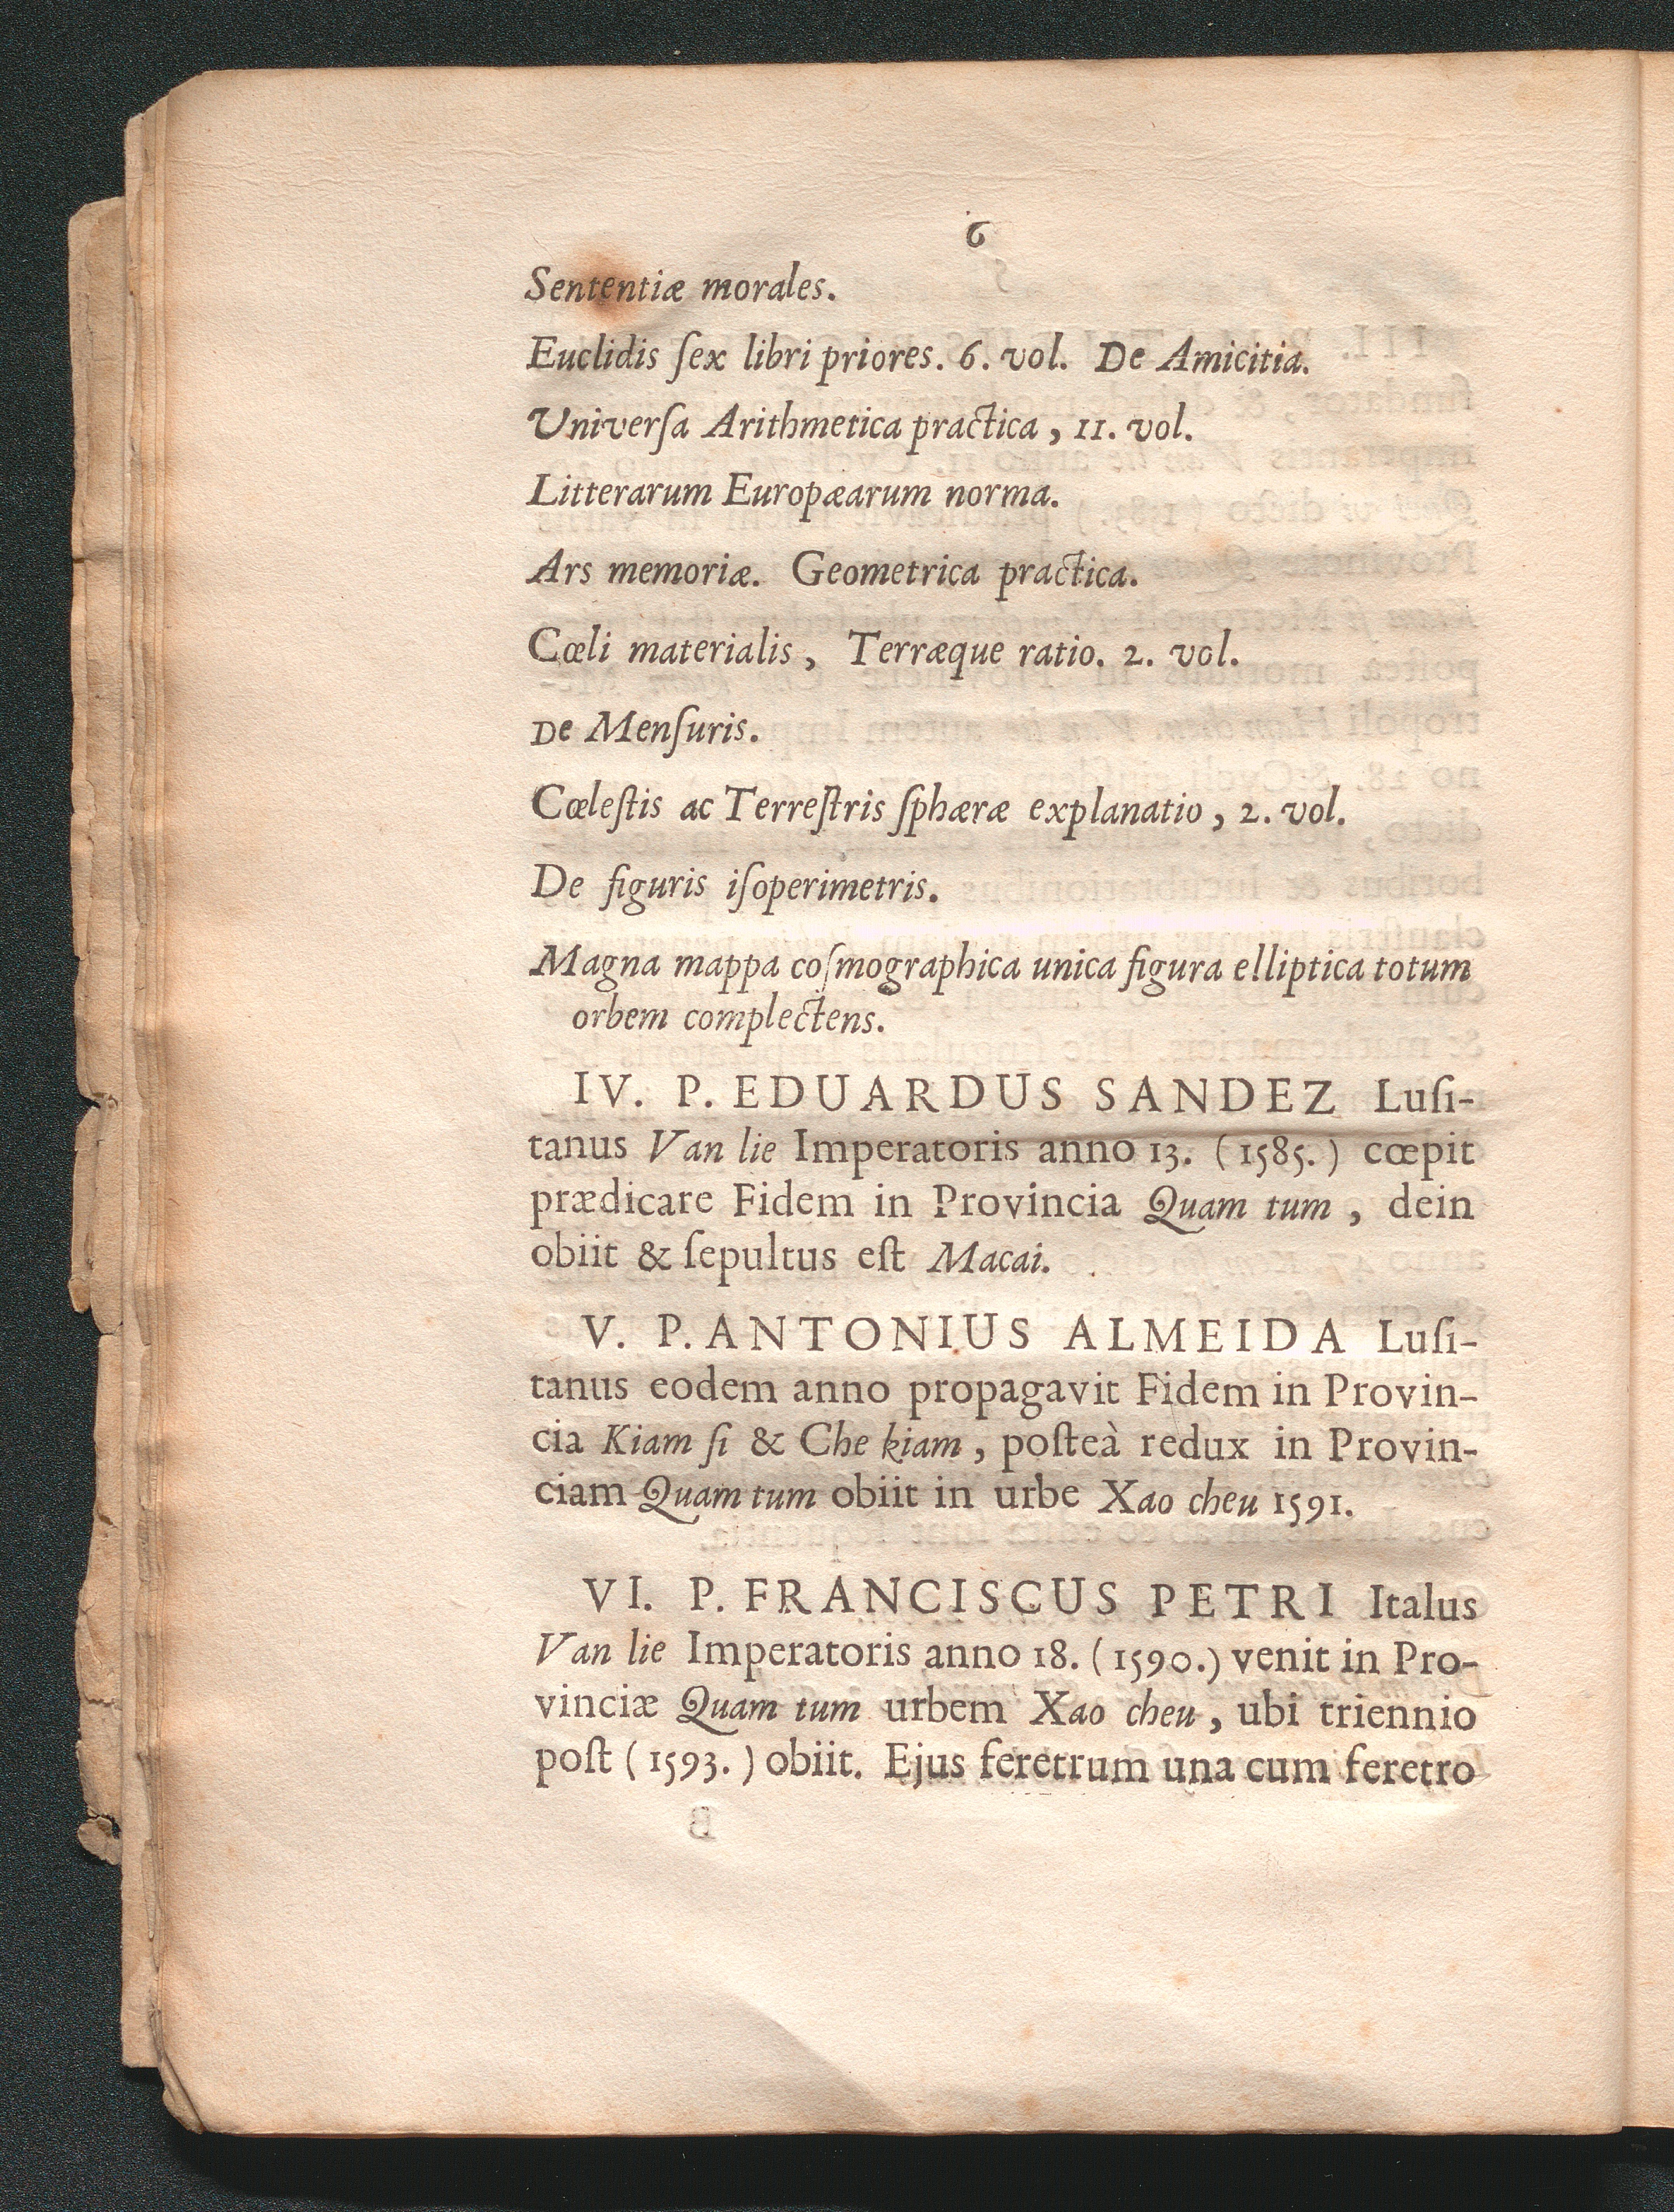 6
Sententiæ morales.
Euclidis ſex libri priores. 6. vol. De Amicitia.
Univerſa Arithmetica practica, 11. vol.
Litterarum Europæarum norma.
Ars memoriæ. Geometrica practica.
Cœli materialis, Terræque ratio. 2. vol.
De Menſuris.
Cœleſtis ac Terreſtris ſphæræ explanatio, 2. vol.
De figuris iſoperimetris.
Magna mappa coſmographica unica figura elliptica totum
orbem complectens.
IV. P. EDUARDUS SANDEZ Luſi-
tanus Van lie Imperatoris anno 13. (1585.) cœpit
prædicare Fidem in Provincia Quam tum, dein
obiit & ſepultus eſt Macai.
V. P. ANTONIUS ALMEIDA Luſi-
tanus eodem anno propagavit Fidem in Provin-
cia Kiam ſi & Che kiam, poſteà redux in Provin-
ciam Quam tum obiit in urbe Xao cheu 1591.
VI. P. FRANCISCUS PETRI Italus
Van lie Imperatoris anno 18. (1590.) venit in Pro-
vinciæ Quam tum urbem Xao cheu, ubi triennio
poſt (1593.) obiit. Ejus feretrum una cum feretro